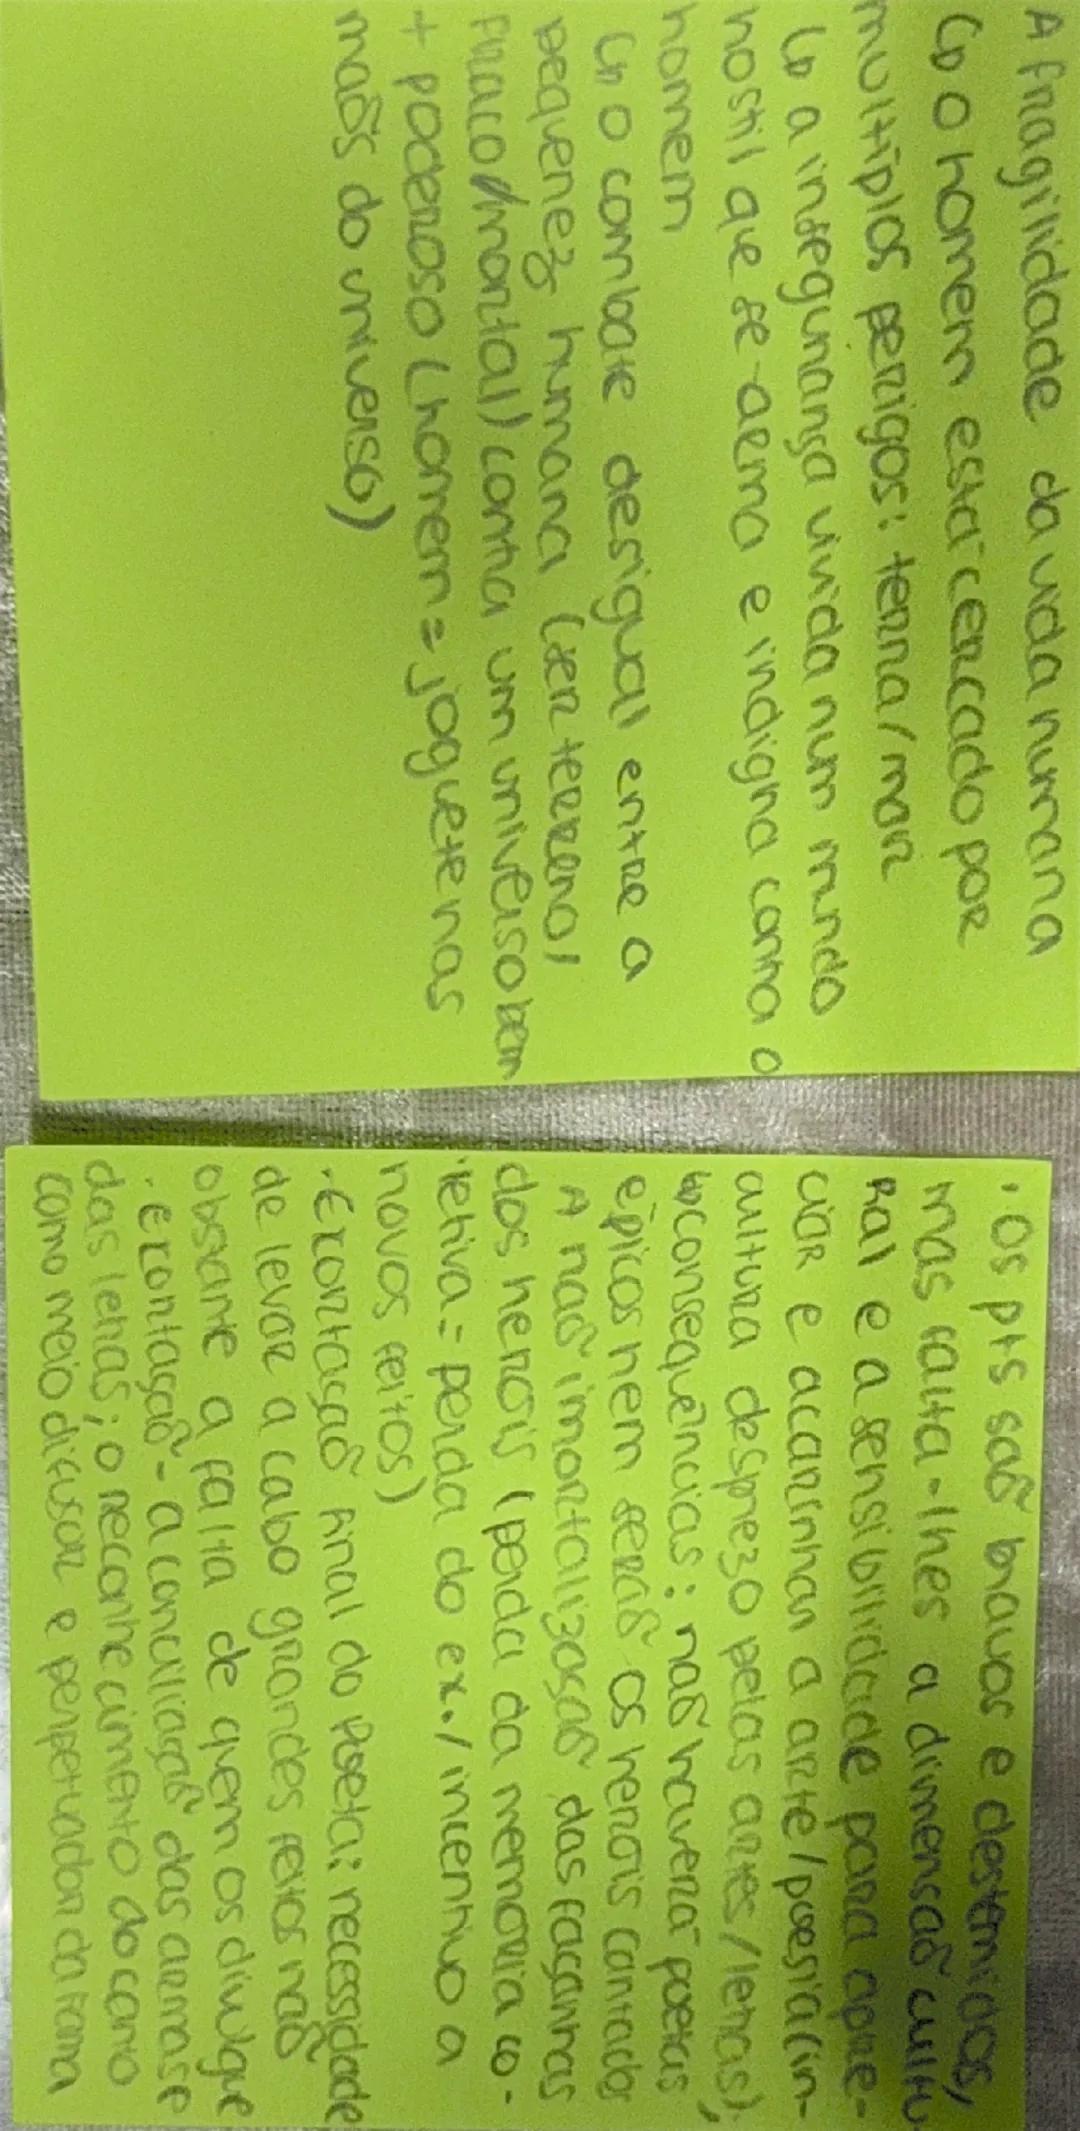 A fragilidade da vida humana
↳ o homem está cercado por
multiplos perigos: terra/mar
↳ a insegurança vivida num mundo
hostil que se arma e indigna contra o
homem
↳ o combate desigual entre a
pequenez humana (ser terreno/
fraco/mortal) contra um universo bem
+ poderoso (homem = joguete nas
maõs do universo)
• Os pts saõ bravos e destemidos,
mas falta-lhes a dimensaõ cultu
ral e a sensibilidade para apre-
ciar e acarinhar a arte/poesia (in-
cultura desprezo pelas artes/letras).
↳ consequências: naõ haverá poetas,
épicos nem seraõ os heróis cantados
A naõ imortalizaçaõ das façanhas
dos heróis (perda da memória co-
letiva = perda do ex./incentivo a
novos feitos)
• Exortaçaõ final do Poeta: necessidade
de levar a cabo grandes feitos naõ
obstante a falta de quem os divulgue
• Exortaçaõ - a conciliaçaõ das armas e
das letras; o reconhecimento do canto
como meio difusor e perpetuador da fama